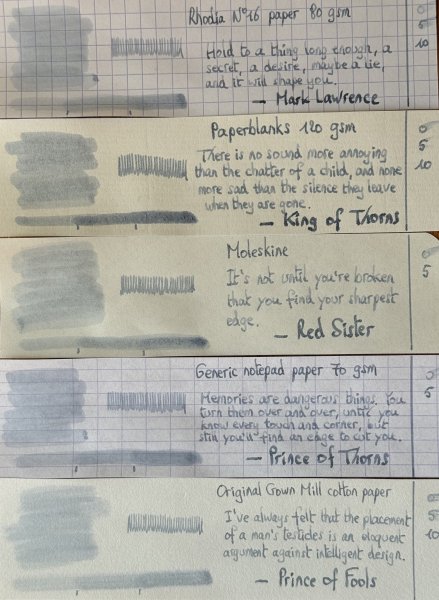 Rhodia N°16 paper 80 gsm
0
5
10
Hold to a thing long enough, a
secret, a desire, maybe a lie,
and it will shape you.
— Mark Lawrence
Paperblanks 120 gsm
0
5
10
There is no sound more annoying
than the chatter of a child, and none
more sad than the silence they leave
when they are gone.
— King of Thorns
Moleskine
0
5
It's not until you're broken
that you find your sharpest
edge.
— Red Sister
Generic notepad paper 70 gsm
0
5
Memories are dangerous things. You
turn them over and over, until you
know every touch and corner, but
still you'll find an edge to cut you.
— Prince of Thorns
Original Crown Mill cotton paper
0
5
10
I've always felt that the placement
of a man's testicles is an eloquent
argument against intelligent design.
— Prince of Fools